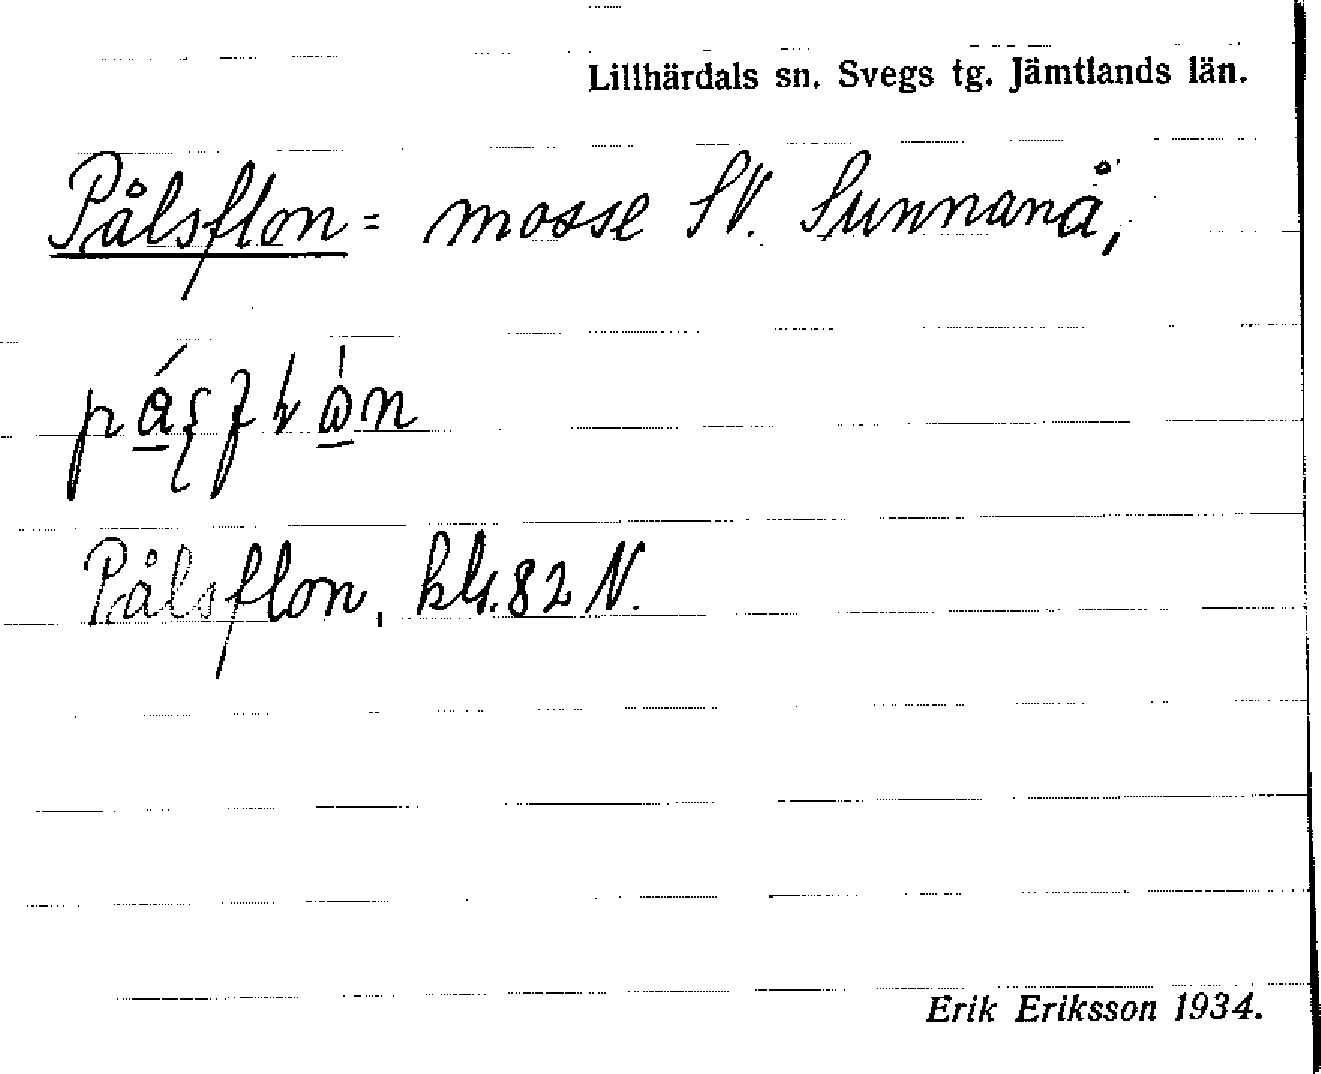 Lillhärdals sn. Svegs tg. Jämtlands län.
Pålsflon = mosse SV. Sunnanå,
Pålsflon, kbl. 82 N.
Erik Eriksson 1934.